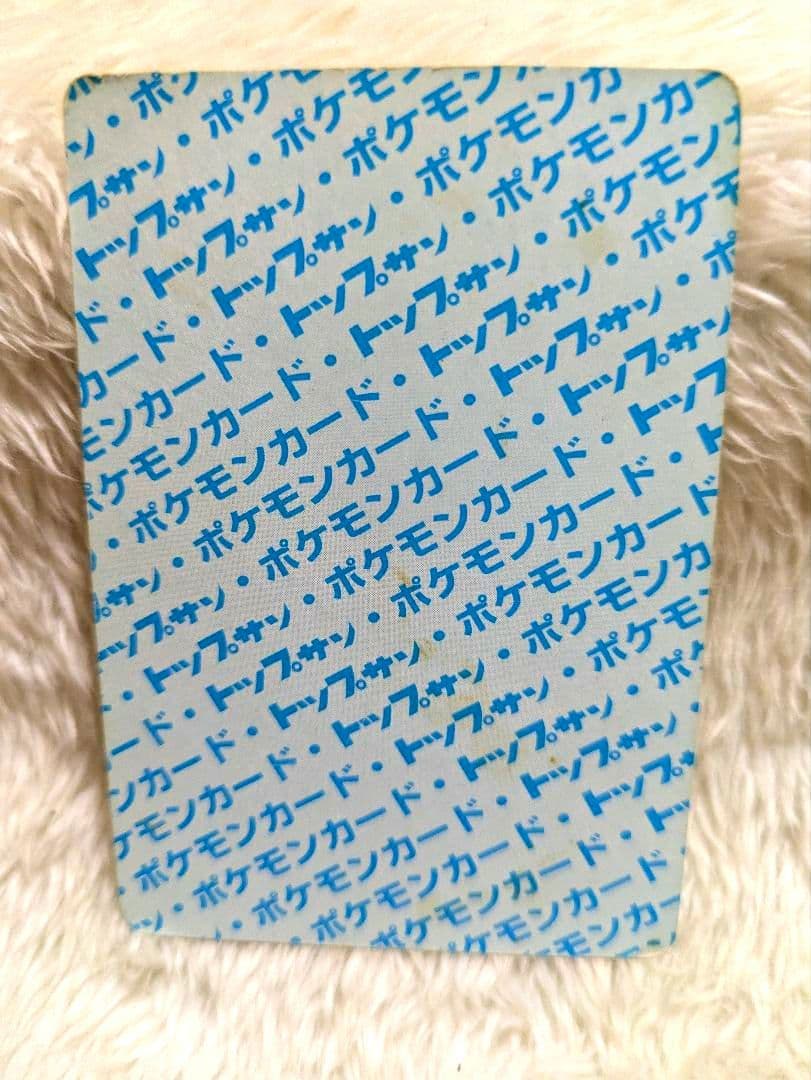 ン・ポケ
プサン・ポケモ
トップサン・ポケモ
ド・トップサン・ポケモン
カード・トップサン・ポケモンカ
モンカード・トップサン・ポケモンカー
ポケモンカード・トップサン・ポケモンカ
・ポケモンカード・トップサン・ポケモ
プサン・ポケモンカード・トップサン・ポ
ップサン・ポケモンカード・トップサン
・トップサン・ポケモンカード・トップ
ード・トップサン・ポケモンカード・ト
ンカード・トップサン・ポケモンカード
ケモンカード・トップサン・ポケモンカ
・ポケモンカード・トップサン・ポケモ
ン・ポケモンカード・トップサン・ポ
・ポケモンカード・トップサン
ポケモンカード・トップ
ケモンカード
モンカー